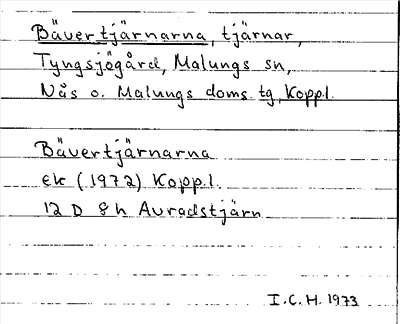 Bävertjärnarna, tjärnar,
Tyngsjögård, Malungs sn,
Nås o. Malungs doms. tg, Koppl.
Bävertjärnarna
ek (1972) Koppl.
12 D 8h Avradstjärn
I.C.H. 1973